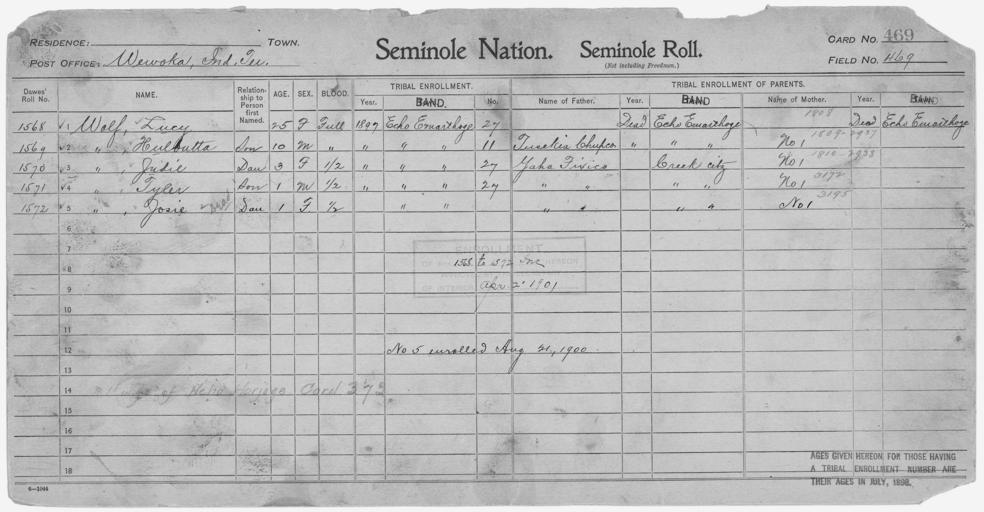 RESIDENCE: TOWN. Seminole Nation. Seminole Roll. CARD NO. 469
POST OFFICE: Wewoka, Ind. Ter. (Not including Freedmen.) FIELD NO. 469
Dawes' Roll No. NAME. Relationship to Person first Named. AGE. SEX. BLOOD. TRIBAL ENROLLMENT. TRIBAL ENROLLMENT OF PARENTS.
Year. BAND. No. Name of Father. Year. BAND Name of Mother. Year. BAND
1568 1 Wolf, Lucy 25 F Full 1897 Echo Emarthoge 27 Dead Echo Emarthoge 1808 Dead Echo Emarthoge
1569 2 " , Hulbutta Son 10 M " " " " 11 Tuskia Chupco " " No 1 1809-2937
1570 3 " , Judie Dau 3 F 1/2 " " " 27 Yaha Fixico Creek citz No 1 1810-2938
1571 4 " , Tyler Son 1 M 1/2 " " " 27 " " " " No 1 3172
1572 5 " , Josie Dau 1 F 1/2 " " " " " " No 1 3195
6
7 ENROLLMENT
8 OF HEREON
1568 to 1572 Inc
9 OF INTERIOR Apr 2 1901
10
11
12 No 5 enrolled Aug 21, 1900
13
14 of Card 373
15
16
17 AGES GIVEN HEREON FOR THOSE HAVING
18 A TRIBAL ENROLLMENT NUMBER ARE
THEIR AGES IN JULY, 1898.
6-1044